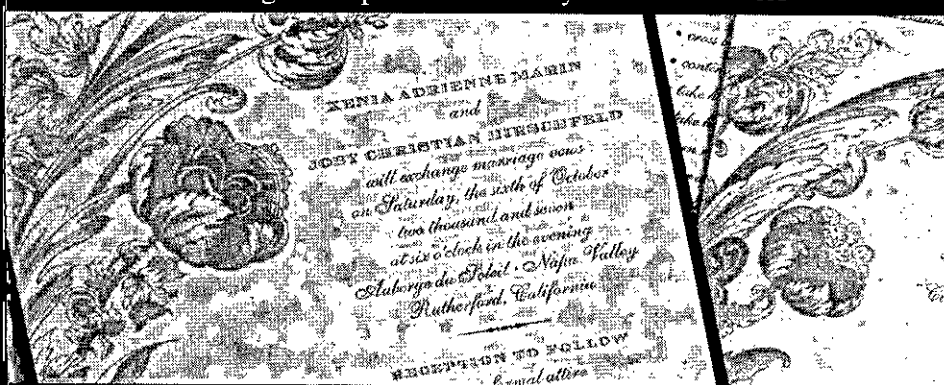 XENIA ADRIENNE MARIN
and
JOBY CHRISTIAN HIRSCHFELD
will exchange marriage vows
on Saturday, the sixth of October
two thousand and seven
at six o'clock in the evening
Auberge du Soleil • Napa Valley
Rutherford, California
RECEPTION TO FOLLOW
formal attire